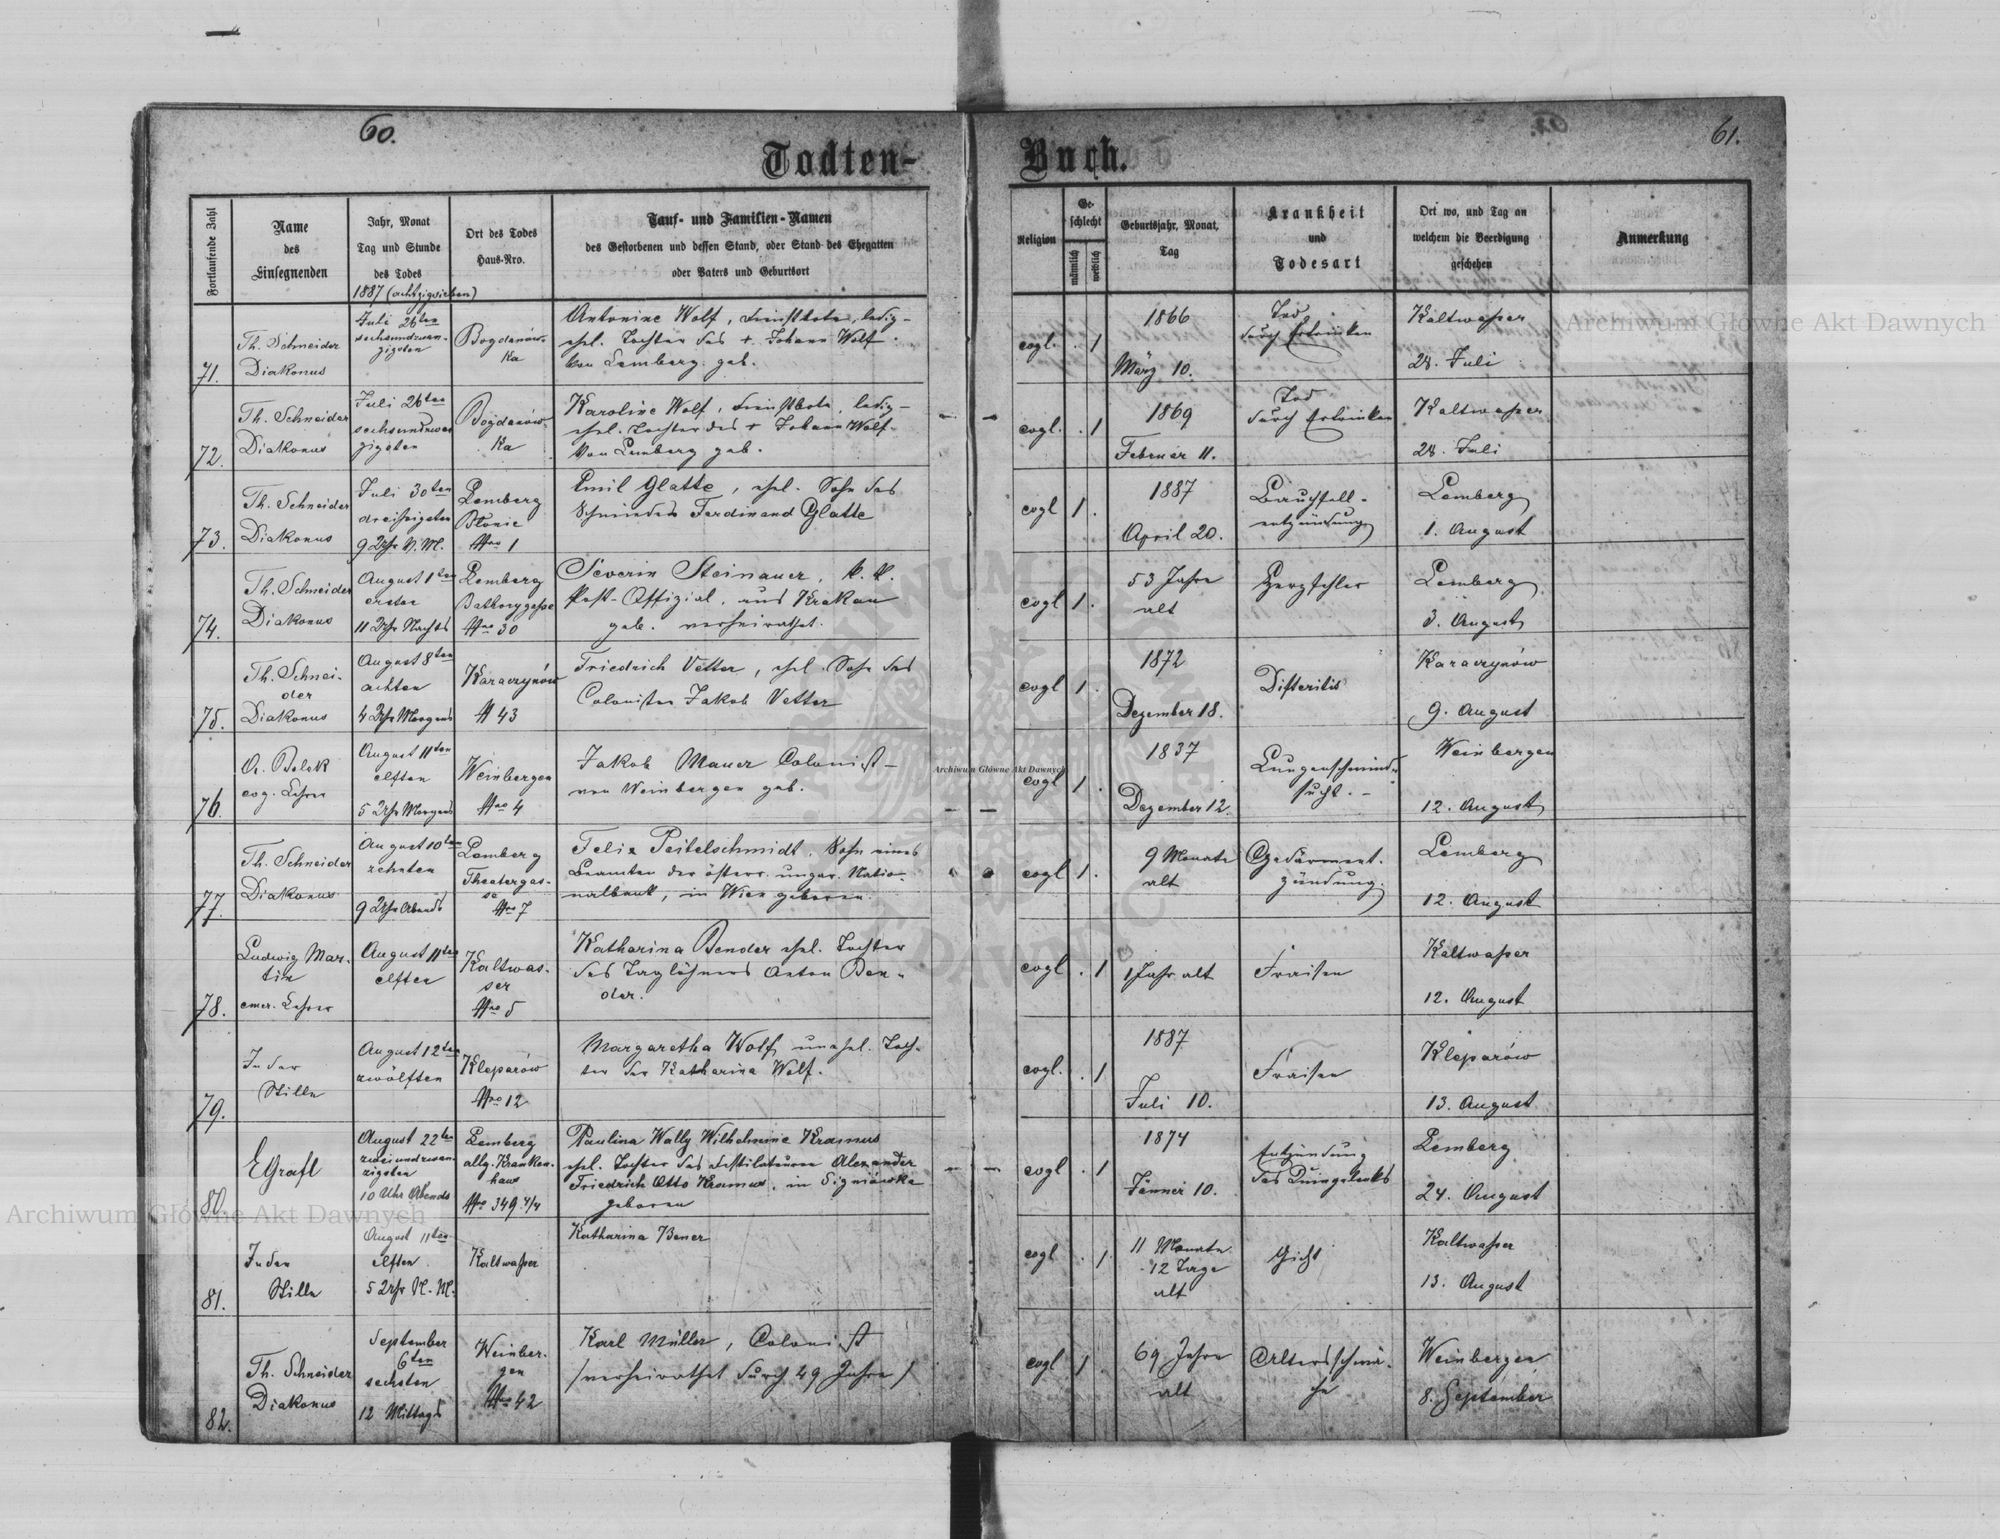 60.
61.
Todten-
Buch.
Fortlaufende Zahl
Name
des
Einsegnenden
Jahr, Monat
Tag und Stunde
des Todes
1887 (achtzigsieben)
Ort des Todes
Haus-Nro.
Tauf- und Familien-Namen
des Gestorbenen und dessen Stand, oder Stand des Ehegatten
oder Vaters und Geburtsort
Religion
Ge-
schlecht
männlich
weiblich
Geburtsjahr, Monat,
Tag
Krankheit
und
Todesart
Ort wo, und Tag an
welchem die Beerdigung
geschehen
Anmerkung
71.
Th. Schneider
Diakonus
Juli 26ten
sechsundzwan-
zigsten
Bogdanów-
ka
Antonine Wolf, Dienstbote, ledig-
ehel. Tochter des +. Johann Wolf.
von Lemberg geb.
evgl. . 1
1866
März 10.
Tod
durch Ertrinken
Kaltwaßer
28. Juli
72.
Th. Schneider
Diakonus
Juli 26ten
sechsundzwan
zigsten
Bogdanów-
ka
Karoline Wolf, Dienstbote, ledig-
ehel. Tochter des + Johann Wolf.
von Lemberg geb.
evgl. . 1
1869
Februar 11.
Tod
durch Ertrinken
Kaltwaßer
28. Juli
73.
Th. Schneider
Diakonus
Juli 30ten
dreißigsten
9 Uhr N. M.
Lemberg
Błonie
Nro 1
Emil Glatte, ehel. Sohn des
Schmiedes Ferdinand Glatte
evgl 1 .
1887
April 20.
Bauchfell-
entzündung
Lemberg
1. August
74.
Th. Schneider
Diakonus
August 1ten
erster
11 Uhr Nachts
Lemberg
Bathorygaße
Nro 30
Severin Steinauer, k. k.
Post-Offizial, aus Krakau
geb. verheirathet.
evgl 1 .
53 Jahre
alt
Herzfehler
Lemberg
3. August
75.
Th. Schnei-
der
Diakonus
August 8ten
achten
4 Uhr Morgens
Karaczynów
N 43
Friedrich Vetter, ehel. Sohn des
Colonisten Jakob Vetter
evgl 1 .
1872
Dezember 18.
Difteritis
Karaczynów
9. August
76.
evg. Lehrer
August 11ten
elften
5 Uhr Morgens
Weinbergen
Nro 4
Jakob Mauer Colonist-
von Weinbergen geb.
evgl 1 .
1837
Dezember 12.
Lungenschwind-
sucht. -
Weinbergen
12. August
77.
Th. Schneider
Diakonus
August 10ten
zehnten
9 Uhr Abends
Lemberg
Theatergas-
se
Nro 7
Felix Peitelschmidt, Sohn eines
Beamten der österr. ungar. Natio-
nalbank, in Wien geboren.
evgl 1 .
9 Monate
alt
Gedärment-
zündung.
Lemberg
12. August
78.
Ludwig Mar-
tin
emer. Lehrer
August 11ten
elften
Kaltwas-
ser
Nro 5
Katharina Bender ehel. Tochter
des Taglöhners Anton Ben-
der.
evgl . 1
1 Jahr alt
Fraisen
Kaltwaßer
12. August
79.
In der
Stille
August 12ten
zwölften
Kleparów
Nro 12
Margaretha Wolf, unehel. Toch-
ter der Katharina Wolf.
evgl. . 1
1887
Juli 10.
Fraisen
Kleparów
13. August
80.
EGraft
August 22ten
zweiundzwan-
zigsten
10 Uhr Abends
Lemberg
allg. Kranken-
haus
Nro 349 4/4
Paulina Wally Wilhelmine Kramus
ehel. Tochter des Destilateurs Alexander
Friedrich Otto Kramus, in Signiówka
geboren
evgl . 1
1874
Jänner 10.
Entzündung
Lemberg
24. August
81.
In der
Stille
August 11ten
elften
5 Uhr N. M.
Kaltwaßer
Katharina Bener
evgl . 1.
11 Monate
12 Tage
alt
Gicht
Kaltwaßer
13. August
82.
Th. Schneider
Diakonus
September
6ten
sechsten
12 Mittags
Weinber-
gen
Nro 42
Karl Müller, Colonist
/verheirathet durch 49 Jahre/
evgl 1 .
69 Jahre
alt
Altersschwä-
che
Weinbergen
8. September
Archiwum Główne Akt Dawnych
Archiwum Główne Akt Dawnych
Archiwum Główne Akt Dawnych
ARCHIWUM GŁÓWNE AKT DAWNYCH